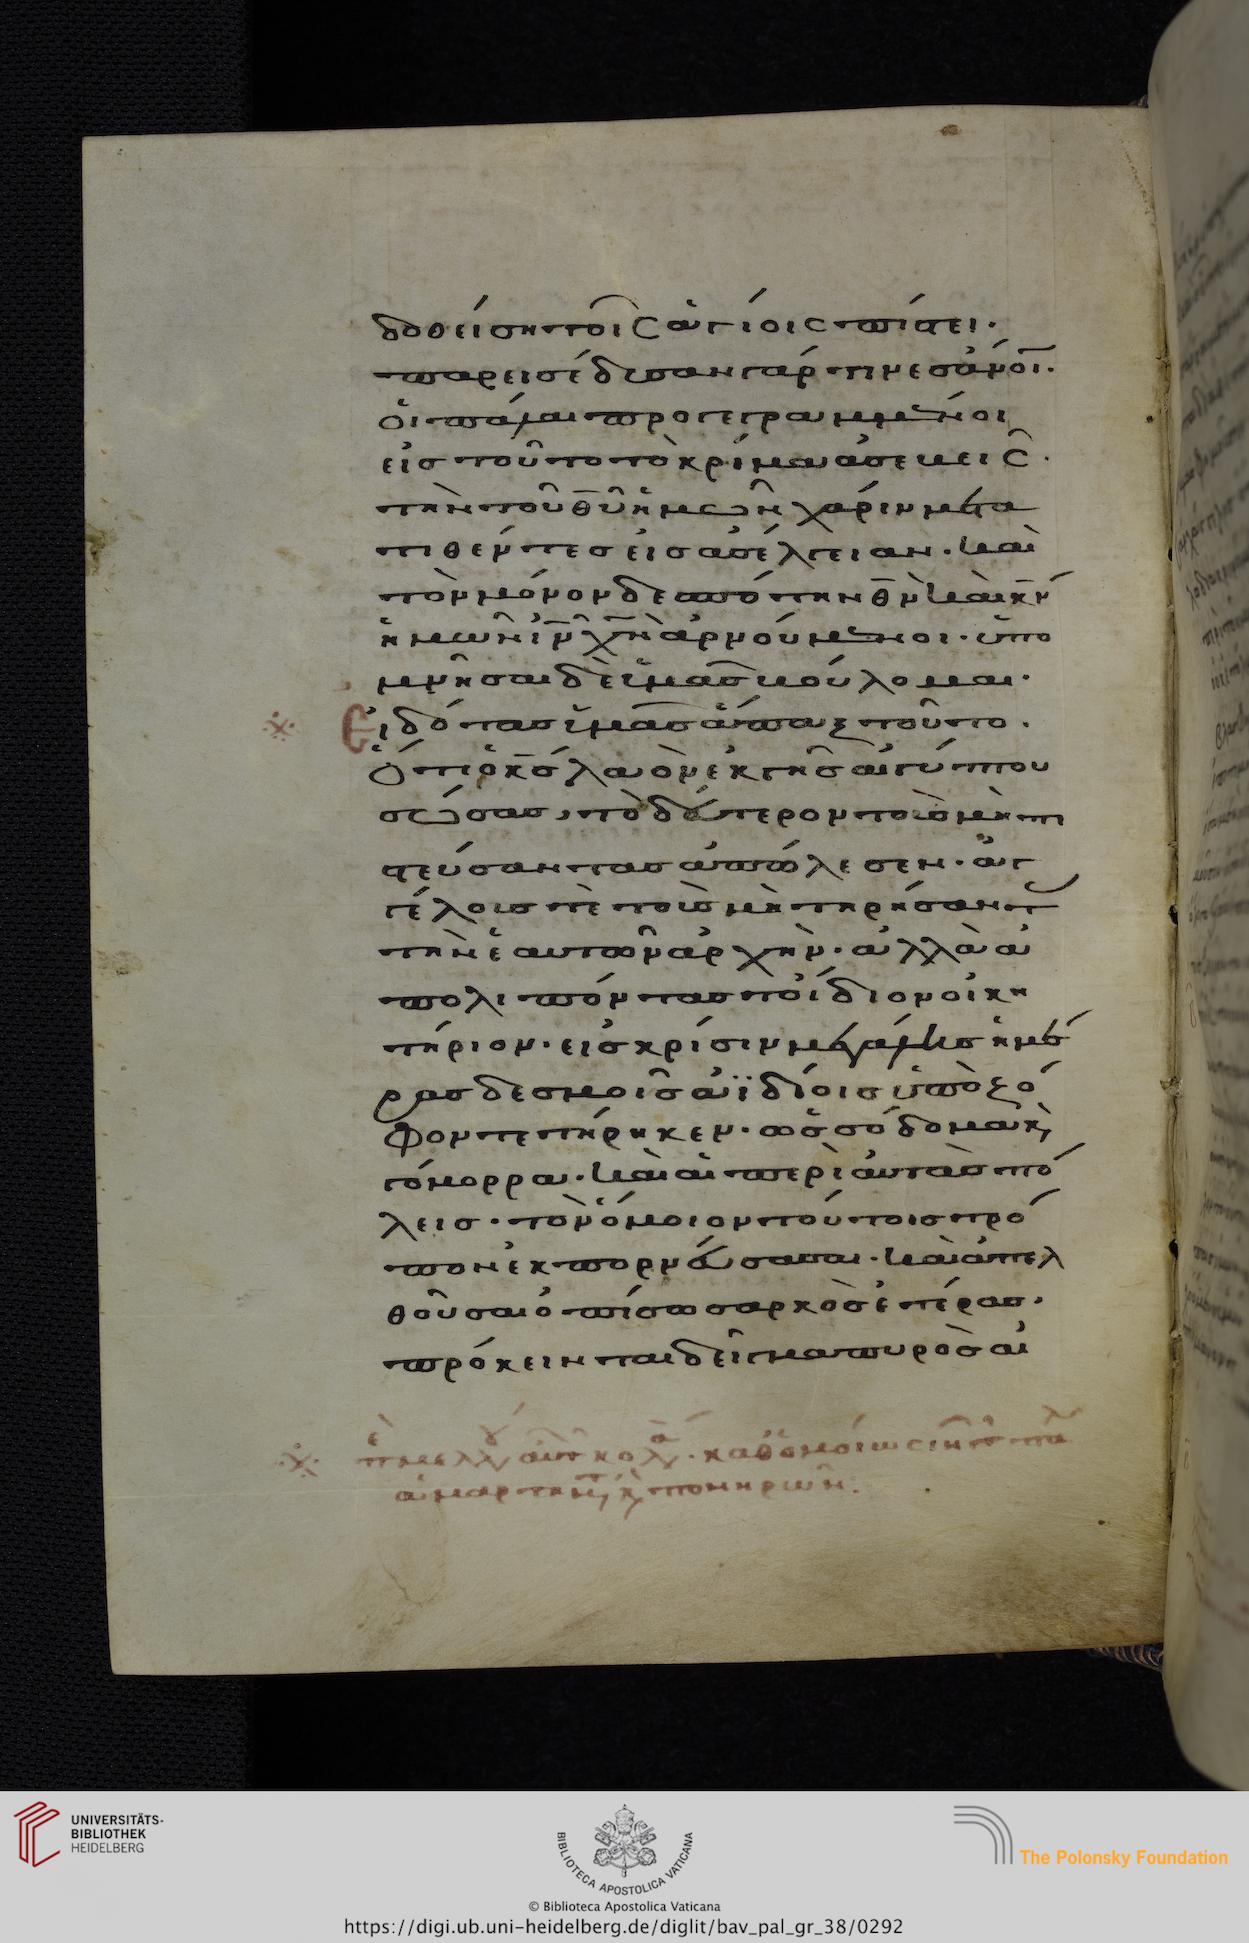 δοθείση τοῖς ἁγίοις πίστει·
παρεισέδυσαν γάρ τινες ἄνοι·
οἱ πάλαι προγεγραμμένοι
εἰς τοῦτο τὸ κρίμα ἀσεβεῖς·
τὴν τοῦ θυ ἡμῶν χάριν μετα
τιθέντες εἰς ἀσέλγειαν· καὶ
τὸν μόνον δεσπότην θν καὶ κν
ἡμῶν ιν χν ἀρνούμενοι· ὑπο
μνῆσαι δὲ ὑμᾶς βούλομαι·
Εἰδότας ὑμᾶς ἅπαξ τοῦτο·
ὅτι ὁ κς λαὸν ἐκ γῆς αἰγύπτου
σώσας, τὸ δεύτερον τοὺς μὴ πι
στεύσαντας ἀπώλεσεν· ἀγ
γέλους τὲ τοὺς μὴ τηρήσαντ
τὴν ἑαυτῶν ἀρχὴν· ἀλλὰ ἀ
πολιπόντας τὸ ἴδιον οἰκη
τήριον· εἰς κρίσιν μεγάλης ἡμέ
ρας δεσμοῖς ἀϊδίοις ὑπὸ ζό
φον τετήρηκεν· ὡς σόδομα κ
γόμορρα· καὶ αἱ περὶ αὐτὰς πό
λεις· τὸν ὅμοιον τούτοις τρό
πον ἐκπορνεύσασαι· καὶ ἀπελ
θοῦσαι ὀπίσω σαρκὸς ἑτέρας,
πρόκεινται δεῖγμα πυρὸς αἰ
ἁμαρτ κ πονηρῶν:
UNIVERSITÄTS-
BIBLIOTHEK
HEIDELBERG
BIBLIOTECA APOSTOLICA VATICANA
The Polonsky Foundation
© Biblioteca Apostolica Vaticana
https://digi.ub.uni-heidelberg.de/diglit/bav_pal_gr_38/0292